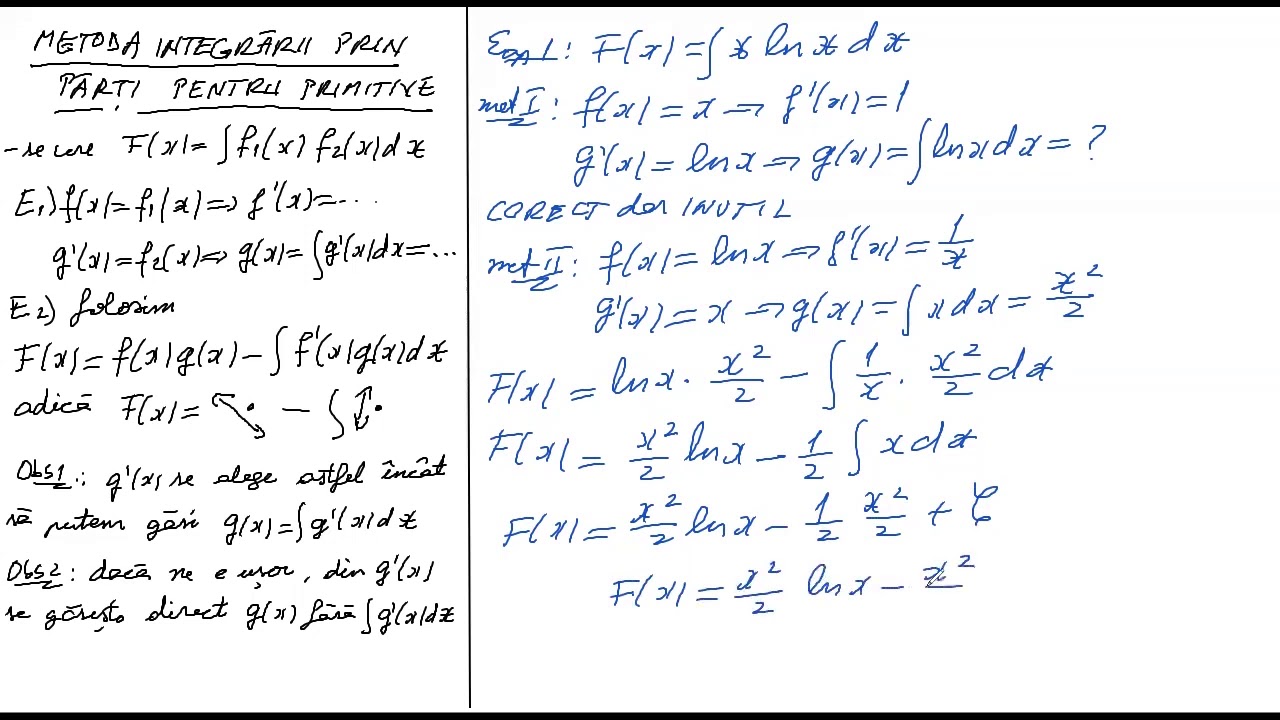 METODA INTEGRĂRII PRIN
PĂRȚI PENTRU PRIMITIVE
- se cere F(x) = ∫ f₁(x) f₂(x) dx
E₁) f(x) = f₁(x) ⇒ f'(x) = ...
g'(x) = f₂(x) ⇒ g(x) = ∫ g'(x) dx = ...
E₂) folosim
F(x) = f(x) g(x) − ∫ f'(x) g(x) dx
adică F(x) = ⤡· − ∫ ↕·
Obs1: g'(x) se alege astfel încât
să putem găsi g(x) = ∫ g'(x) dx
Obs2: dacă ne e ușor, din g'(x)
se găsește direct g(x) fără ∫ g'(x) dx
1: F(x) = ∫ x ln x dx
met I: f(x) = x ⇒ f'(x) = 1
g'(x) = ln x ⇒ g(x) = ∫ ln x dx = ?
CORECT dar INUTIL
met II: f(x) = ln x ⇒ f'(x) = 1/x
g'(x) = x ⇒ g(x) = ∫ x dx = x²/2
F(x) = ln x · x²/2 − ∫ 1/x · x²/2 dx
F(x) = x²/2 ln x − 1/2 ∫ x dx
F(x) = x²/2 ln x − 1/2 x²/2 + C
F(x) = x²/2 ln x − x²